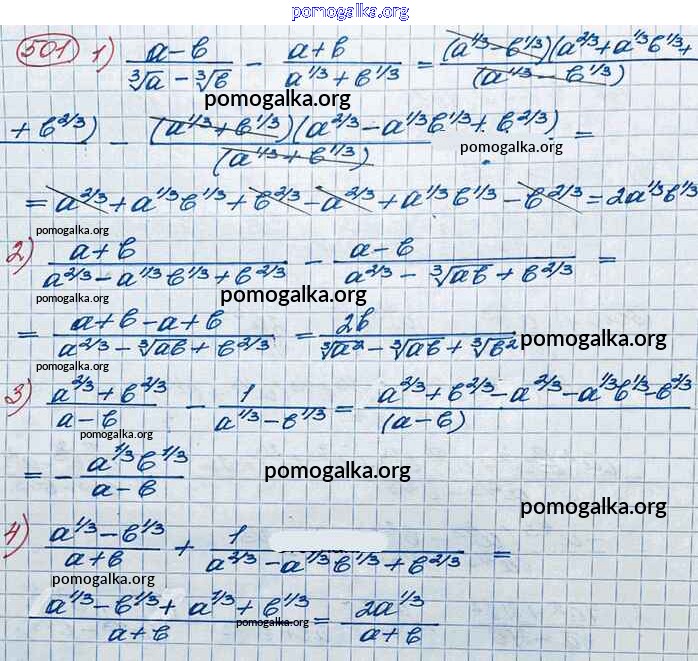 pomogalka.org
501 1) (a-в)/(∛a - ∛в) - (a+в)/(a^1/3 + в^1/3) = (a^1/3 - в^1/3)(a^2/3 + a^1/3 в^1/3 +
pomogalka.org
(a^1/3 - в^1/3)
+ в^2/3) - (a^1/3 + в^1/3)(a^2/3 - a^1/3 в^1/3 + в^2/3) / (a^1/3 + в^1/3) =
pomogalka.org
= a^2/3 + a^1/3 в^1/3 + в^2/3 - a^2/3 + a^1/3 в^1/3 - в^2/3 = 2a^1/3 в^1/3
pomogalka.org
2) (a+в)/(a^2/3 - a^1/3 в^1/3 + в^2/3) - (a-в)/(a^2/3 - ∛aв + в^2/3) =
pomogalka.org
pomogalka.org
= (a+в-a+в)/(a^2/3 - ∛aв + в^2/3) = 2b/(∛a² - ∛aв + ∛в²)
pomogalka.org
pomogalka.org
3) (a^2/3 + в^2/3)/(a-в) - 1/(a^1/3 - в^1/3) = (a^2/3 + в^2/3 - a^2/3 - a^1/3 в^1/3 - в^2/3)/(a-в)
pomogalka.org
= - (a^1/3 в^1/3)/(a-в)
pomogalka.org
pomogalka.org
4) (a^1/3 - в^1/3)/(a+в) + 1/(a^2/3 - a^1/3 в^1/3 + в^2/3) =
pomogalka.org
(a^1/3 - в^1/3 + a^1/3 + в^1/3)/(a+в) = 2a^1/3/(a+в)
pomogalka.org